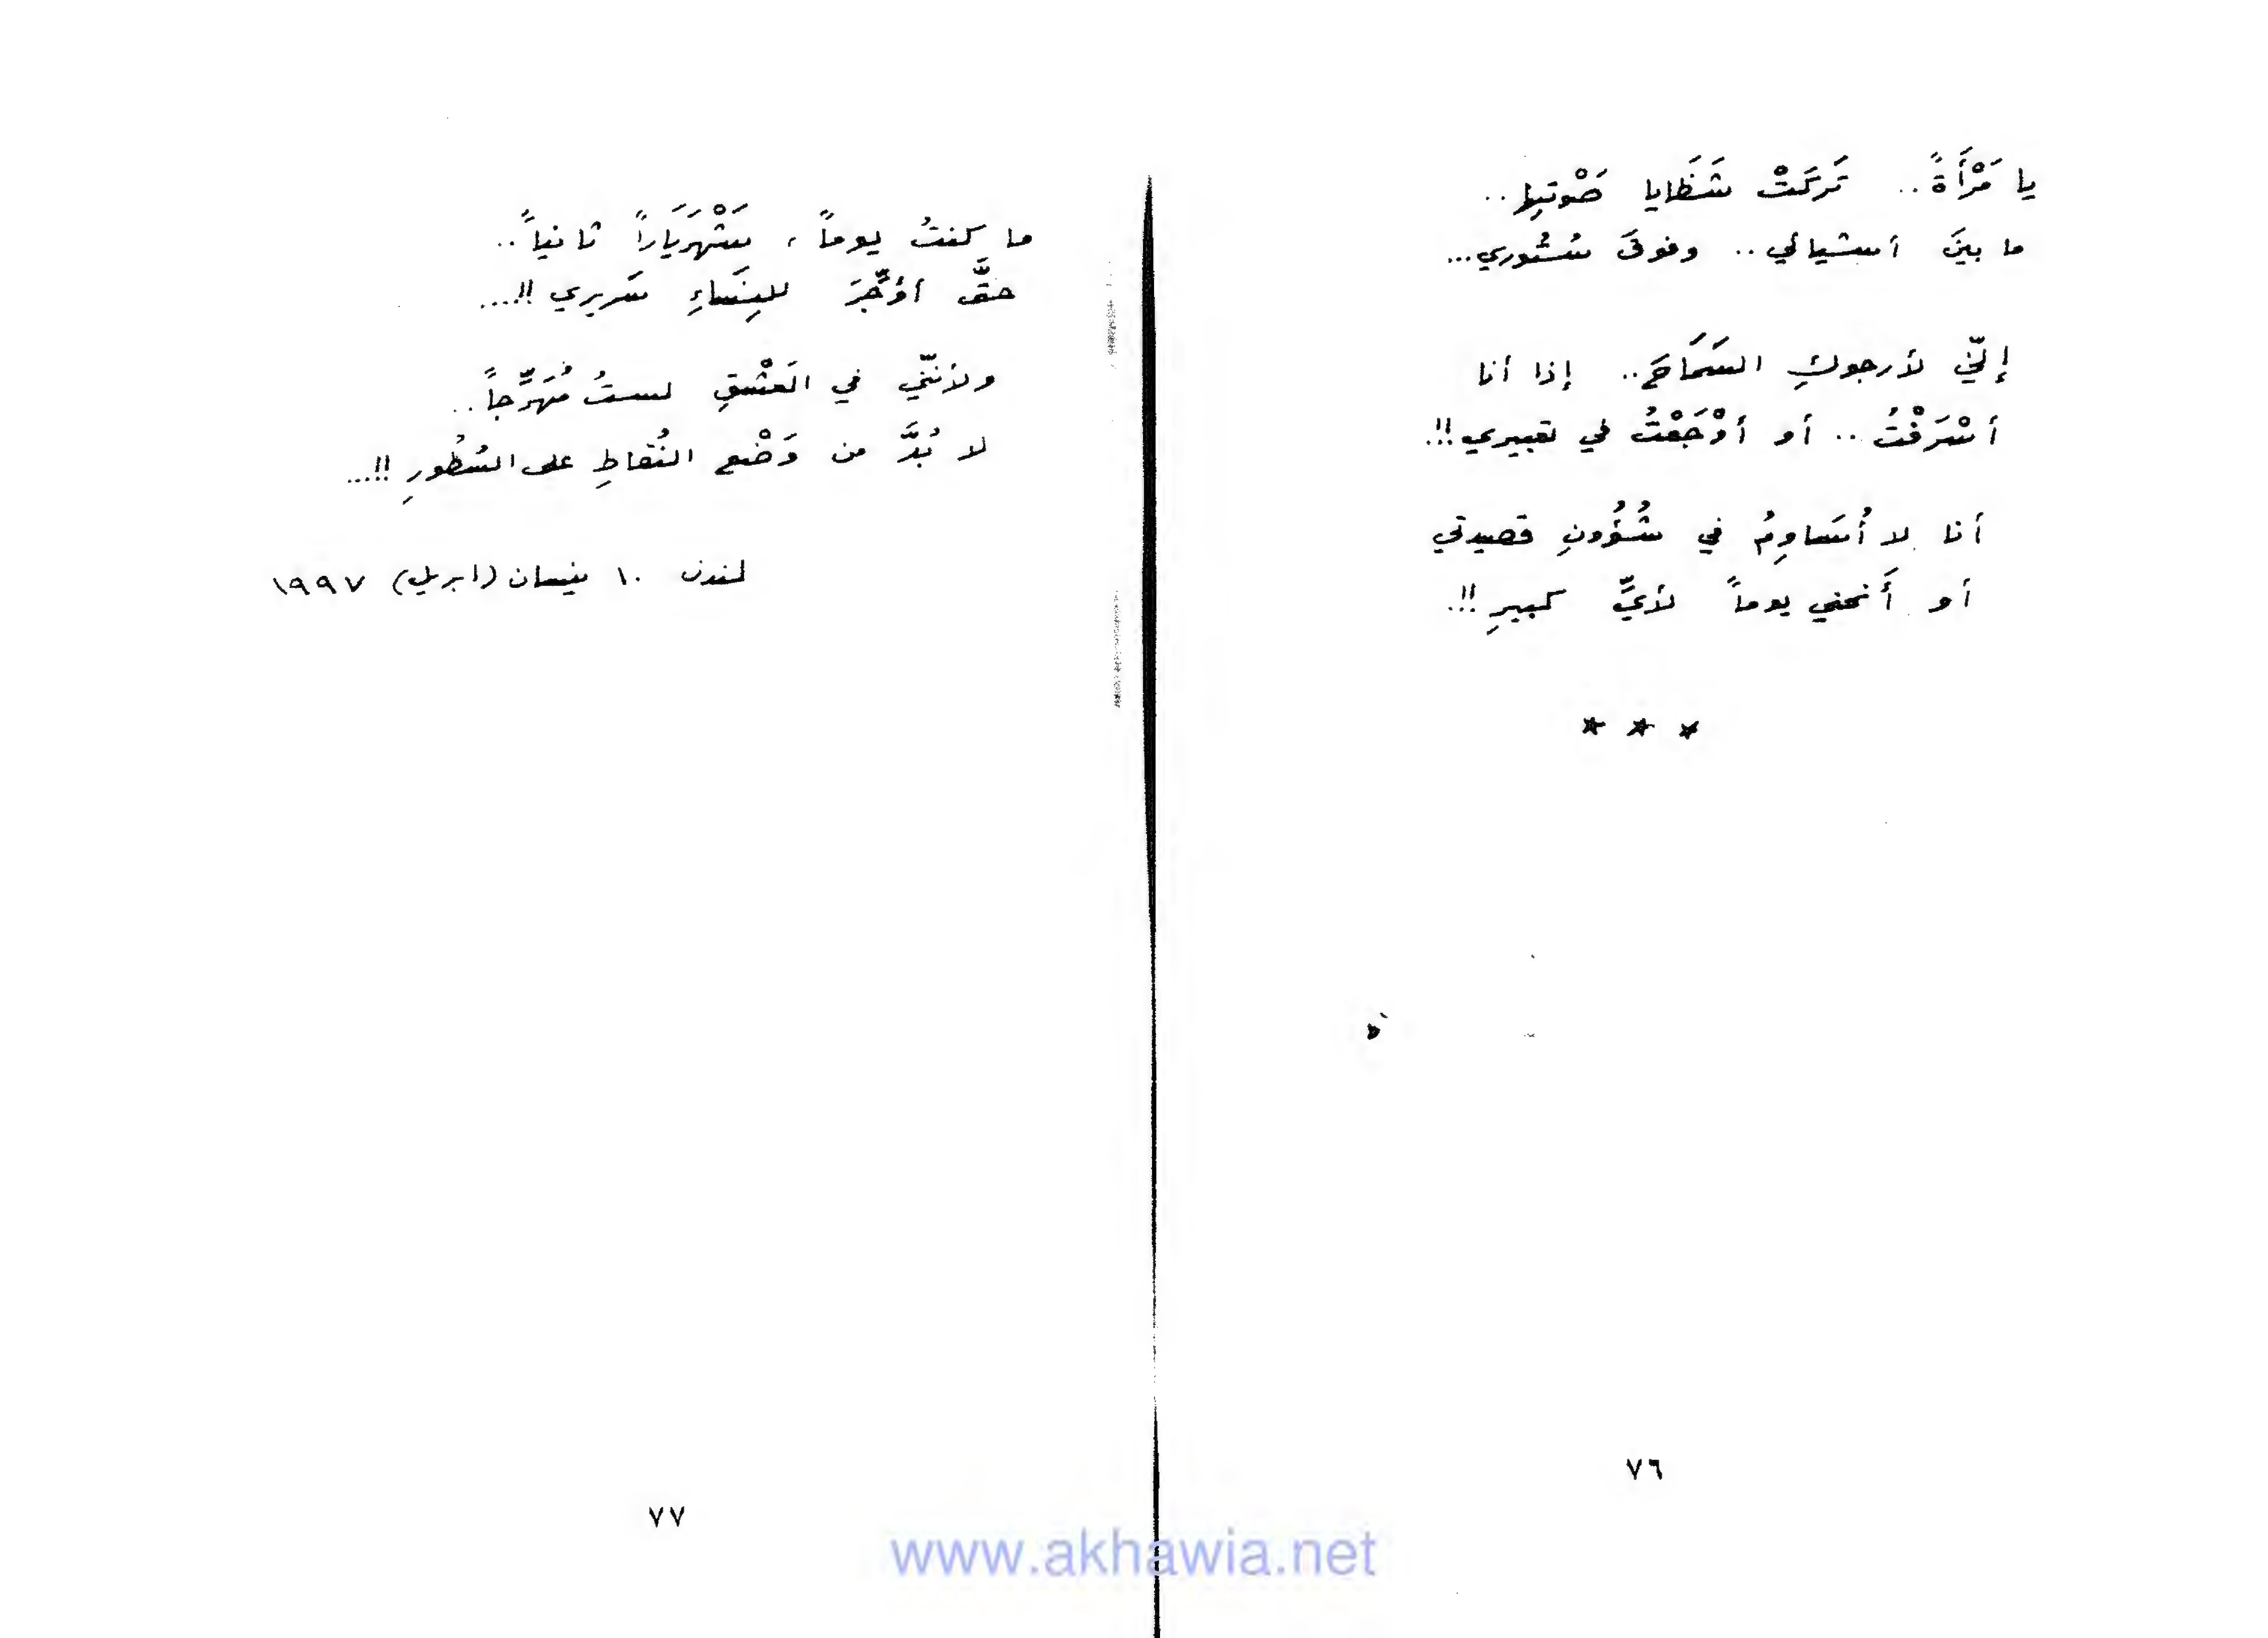 يا مَرْأَةً.. تَرَكَتْ شَظَايا صَوْتِها..
ما بينَ أشيائي.. وفوقَ سُتُوري...
إنّي لأرجوكِ السَمَاحَ.. إذا أنا
أسْرَفْتُ.. أو أوْجَعْتُ في تعبيري!!.
أنا لا أُسَاوِمُ في شُؤُونِ قصيدتي
أو أَنحني يوماً لأيِّ كبيرِ!!.
* * *
٧٦
ما كنتُ يوماً، شَهْرَيَاراً ثانياً..
حتَّى أؤجِّرَ للنِسَاءِ سَريري!!....
ولأنّني في العَشْقِ لستُ مُهَرِّجاً..
لا بُدَّ من وَضْعِ النُقاطِ على السُطُورِ!!....
لندن ١٠ نيسان (ابريل) ١٩٩٧
٧٧
www.akhawia.net